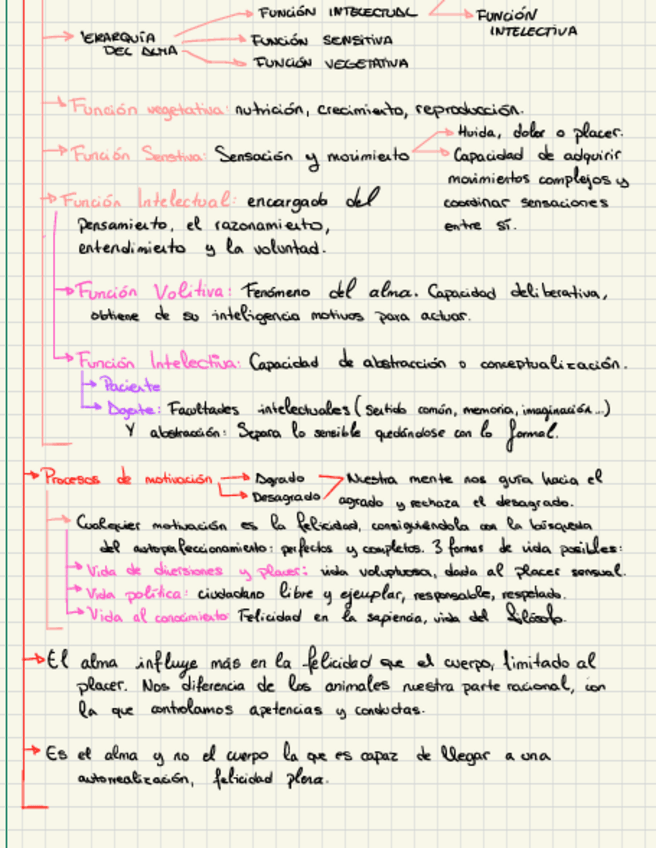 FUNCIÓN INTELECTUAL → FUNCIÓN INTELECTIVA
→ JERARQUÍA DEL ALMA → FUNCIÓN SENSITIVA
→ FUNCIÓN VEGETATIVA
→ Función vegetativa: nutrición, crecimiento, reproducción.
→ Huida, dolor o placer.
→ Función Sensitiva: Sensación y movimiento → Capacidad de adquirir
movimientos complejos y
→ Función Intelectual: encargado del coordinar sensaciones
pensamiento, el razonamiento, entre sí.
entendimiento y la voluntad.
→ Función Volitiva: Fenómeno del alma. Capacidad deliberativa,
obtiene de su inteligencia motivos para actuar.
→ Función Intelectiva: Capacidad de abstracción o conceptualización.
→ Paciente
→ Agente: Facultades intelectuales (Sentido común, memoria, imaginación...)
Y abstracción: Separa lo sensible quedándose con lo formal.
→ Procesos de motivación → Agrado → Nuestra mente nos guía hacia el
→ Desagrado agrado y rechaza el desagrado.
→ Cualquier motivación es la felicidad, consiguiéndola con la búsqueda
del autoperfeccionamiento: perfectos y completos. 3 formas de vida posibles:
→ Vida de diversiones y placer: vida voluptuosa, dada al placer sensual.
→ Vida política: ciudadano libre y ejemplar, responsable, respetado.
→ Vida al conocimiento: Felicidad en la sapiencia, vida del filósofo.
→ El alma influye más en la felicidad que el cuerpo, limitado al
placer. Nos diferencia de los animales nuestra parte racional, con
la que controlamos apetencias y conductas.
→ Es el alma y no el cuerpo la que es capaz de llegar a una
autorrealización, felicidad plena.